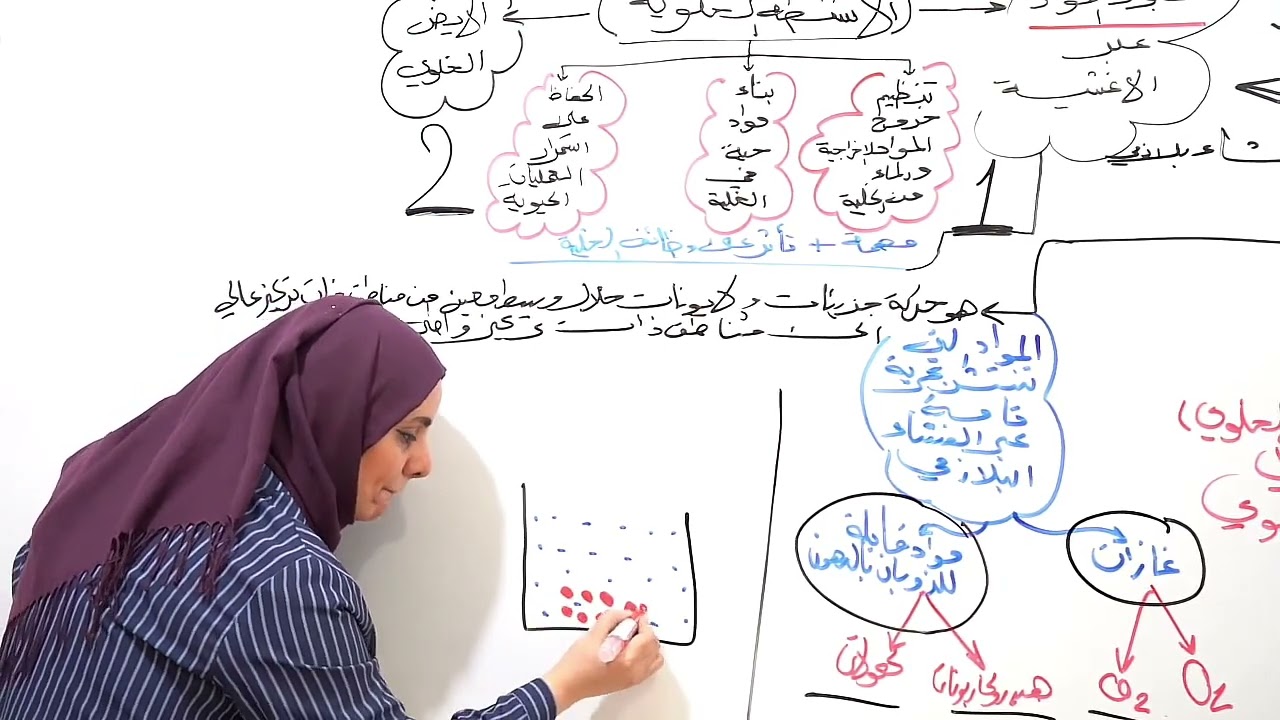 الأنشطة الخلوية
عبر
الأغشية
الايض
الخلوي
تنظيم
خروج
المواد الاخراجية
والماء
من الخلية
بناء
مواد
حية
في
الخلية
الحفاظ
على
استمرار
العمليات
الحيوية
1
2
مهمة + تأثر على وظائف الخلية
هو حركة جزيئات و لايونات خلال وسط معين من مناطق ذات تركيز عالي
الى مناطق ذات تركيز واطئ
المواد التي
تنتشر بحرية
تامة
عبر الغشاء
البلازمي
غازات
O2
مواد قابلة
للذوبان بالدهون
هيدروكاربونات
كحولات